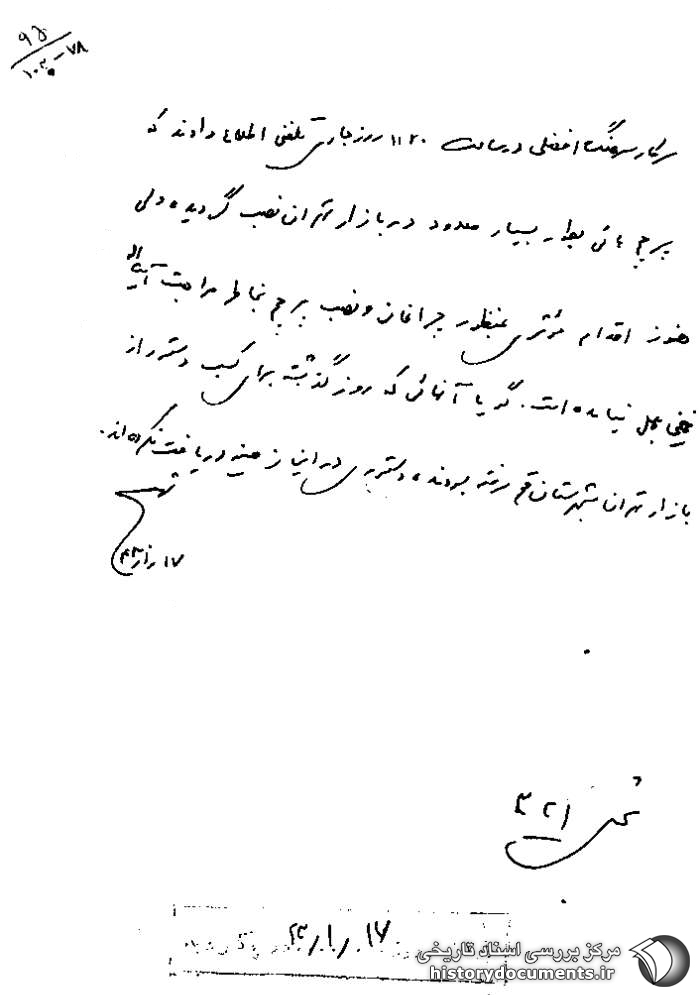 ۹۵
۱۰۲۰-۷۸
سرکار سرهنگ افضلی در ساعت ۱۱۲۰ روز جاری تلفنی اطلاع دادند که
پرچم هائی بطور بسیار محدود در بازار تهران نصب گردیده ولی
هنوز اقدام مؤثری بمنظور چراغان و نصب پرچم بخاطر مراجعت آیة اله
خمینی بعمل نیامده است. گویا آنهائی که روز گذشته برای کسب دستور از
بازار تهران بشهرستان قم رفته بودند، دستوری در این زمینه دریافت نکرده‌اند.
۱۷ر۱ر۴۳
۳۲۱
۱۷ ر ۱ ر ۴۳
مرکز بررسی اسناد تاریخی
historydocuments.ir